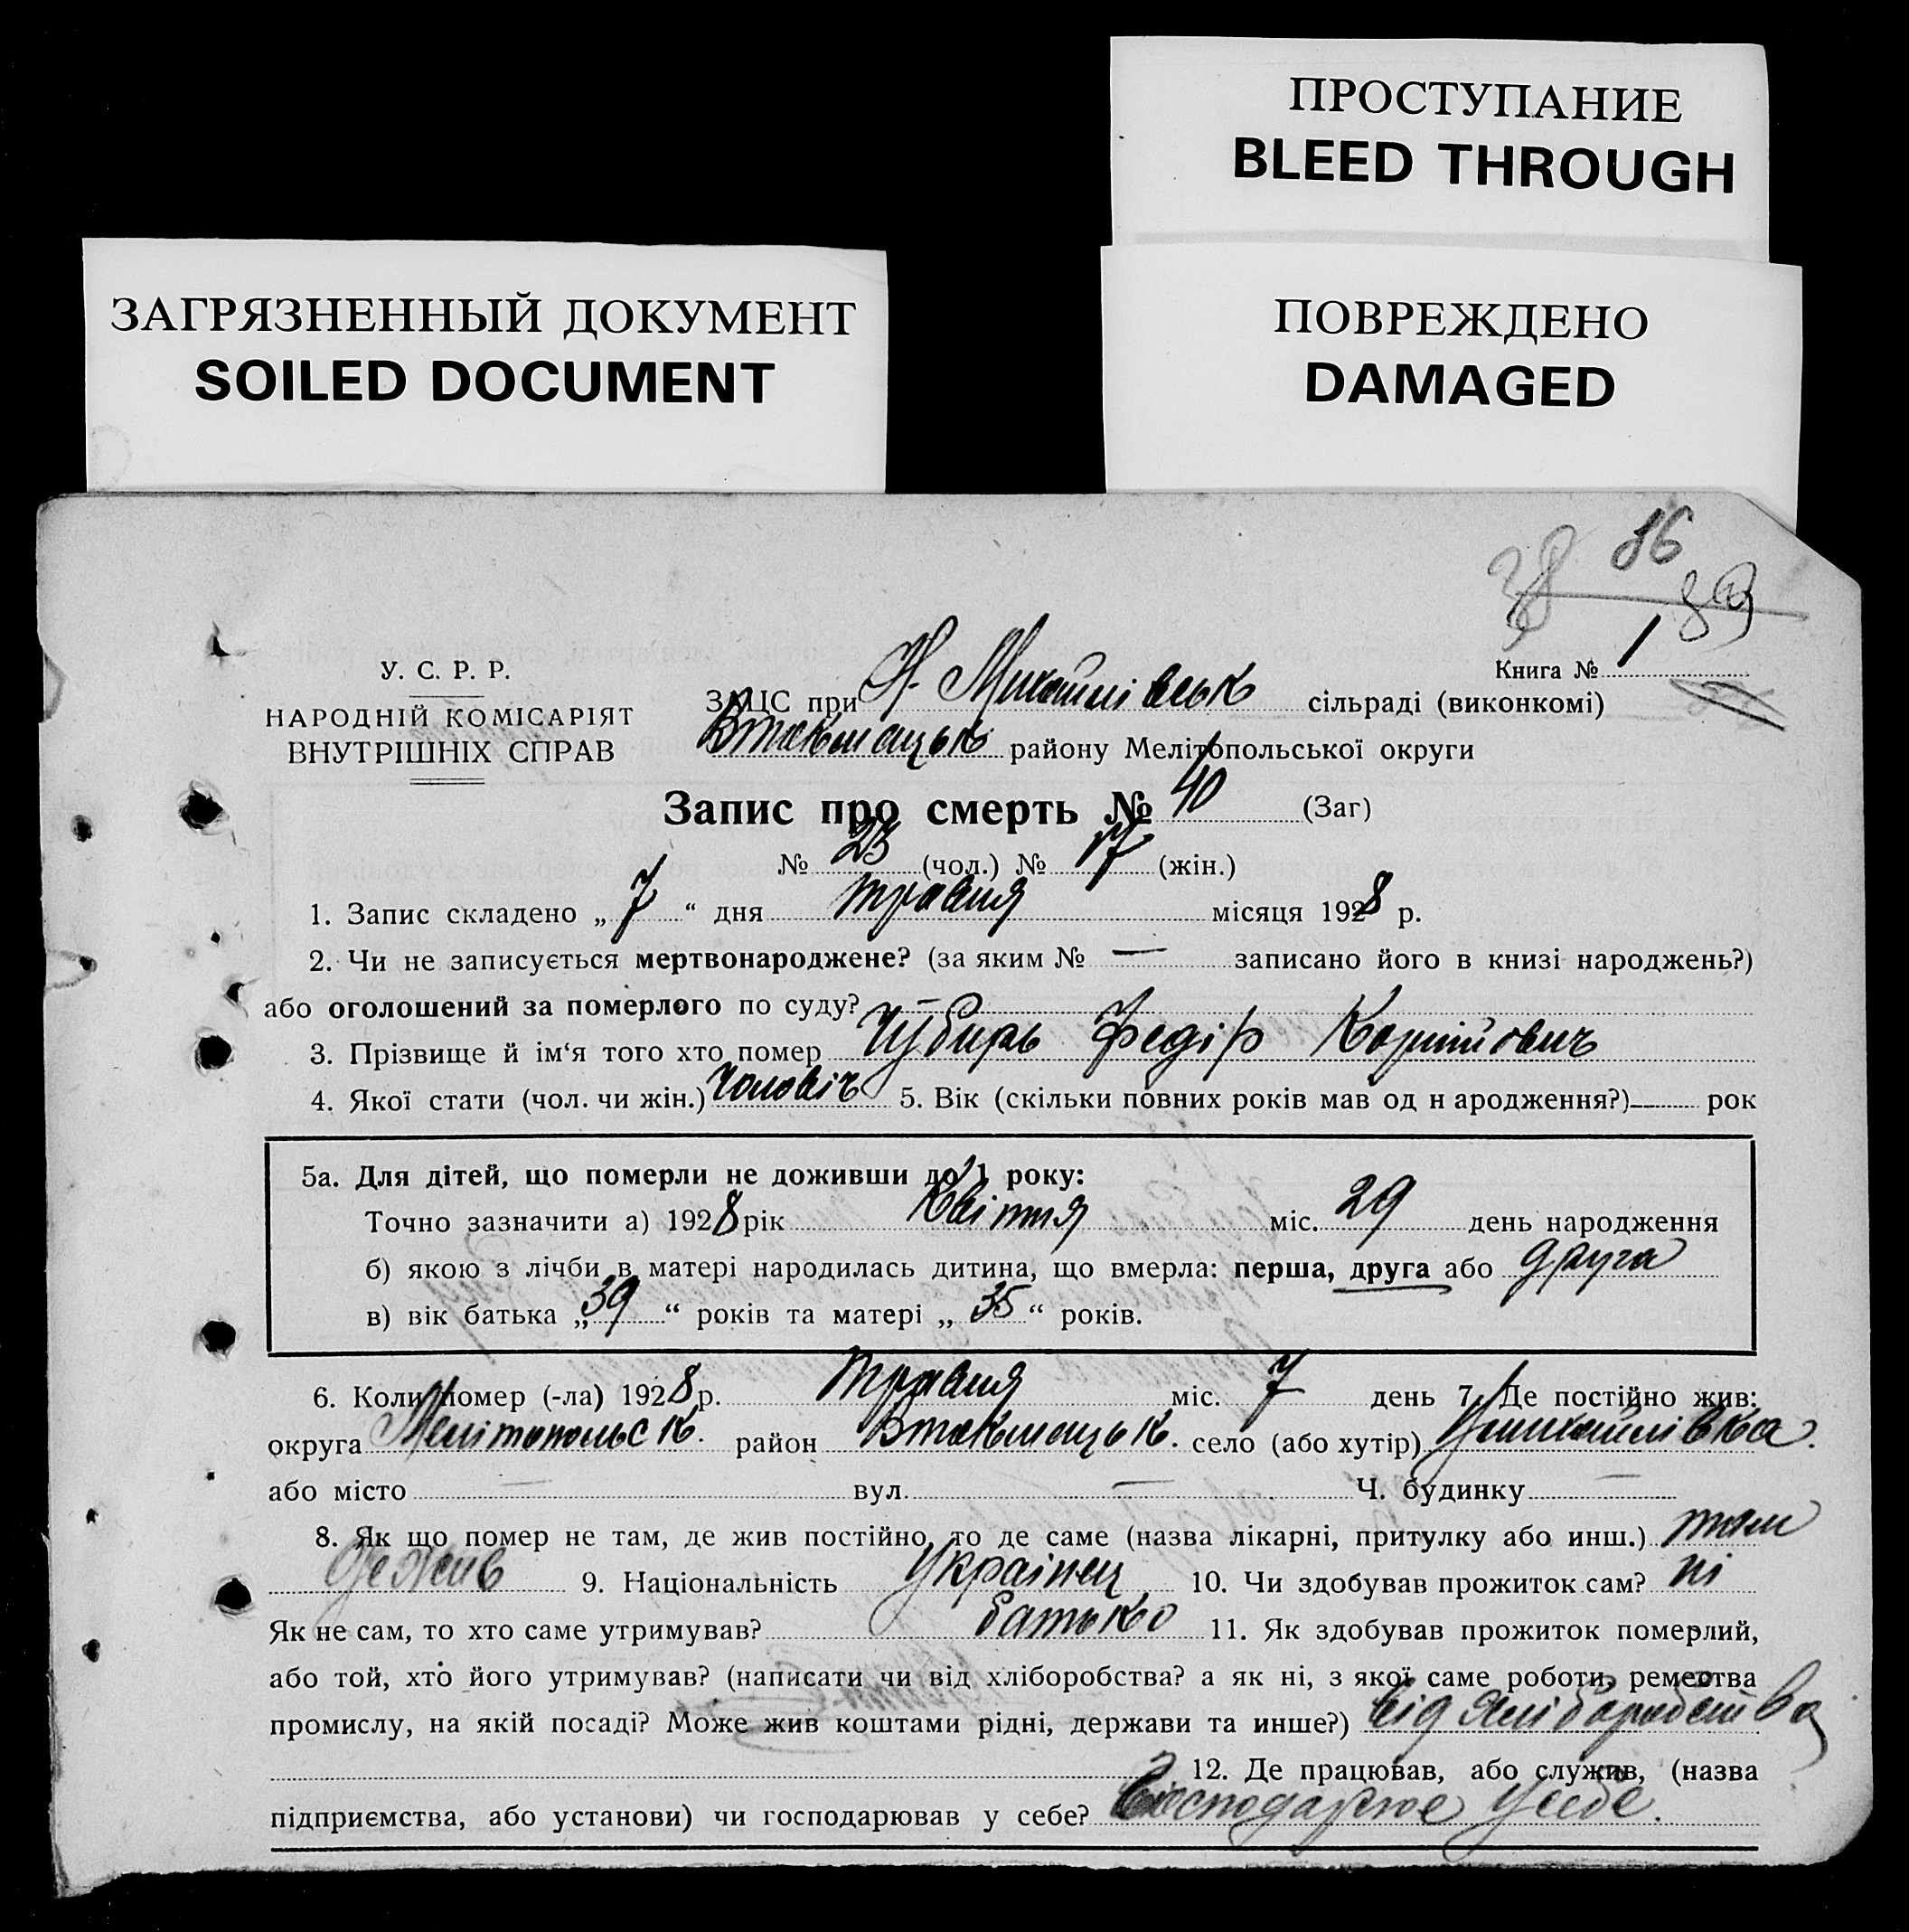 ПРОСТУПАНИЕ
BLEED THROUGH
ЗАГРЯЗНЕННЫЙ ДОКУМЕНТ
SOILED DOCUMENT
ПОВРЕЖДЕНО
DAMAGED
38 36
39
Книга № 1
У. С. Р. Р.
НАРОДНІЙ КОМІСАРІЯТ
ВНУТРІШНІХ СПРАВ
ЗАЦС при Н. Михайлівськ сільраді (виконкомі)
Втокмацьк району Мелітопольської округи
Запис про смерть № 40 (Заг)
№ 23 (чол.) № 17 (жін.)
1. Запис складено „ 7 “ дня травня місяця 1928 р.
2. Чи не записується мертвонароджене? (за яким № — записано його в книзі народжень?)
або оголошений за померлого по суду? —
3. Прізвище й ім‘я того хто помер Чубирь Федір Корнійович
4. Якої стати (чол. чи жін.) чоловіч 5. Вік (скільки повних років мав од н ародження?) — рок
5а. Для дітей, що померли не доживши до 1 року:
Точно зазначити а) 1928 рік Квітня міс. 29 день народження
б) якою з лічби в матері народилась дитина, що вмерла: перша, друга або друга
в) вік батька „ 39 “ років та матері „ 35 “ років.
6. Коли помер (-ла) 1928 р. травня міс. 7 день 7. Де постійно жив:
округа Мелітопольськ. район Втокмацьк. село (або хутір) Михайлівка.
або місто — вул. — Ч. будинку —
8. Як що помер не там, де жив постійно, то де саме (назва лікарні, притулку або инш.) там
де жив 9. Національність Українец 10. Чи здобував прожиток сам? ні
Як не сам, то хто саме утримував? батько 11. Як здобував прожиток померлий,
або той, хто його утримував? (написати чи від хліборобства? а як ні, з якої саме роботи, ремества
промислу, на якій посаді? Може жив коштами рідні, держави та инше?) від хліборобства
12. Де працював, або служив, (назва
підприємства, або установи) чи господарював у себе? Господарює усебе.